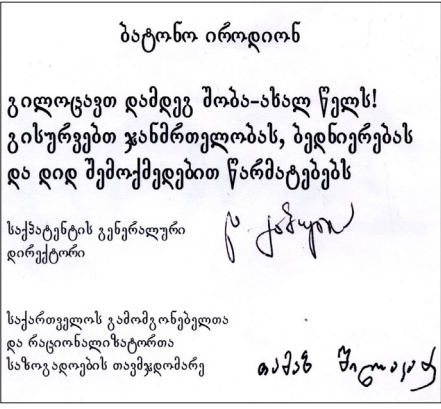 ბატონო იროდიონ
გილოცავთ დამდეგ შობა-ახალ წელს!
გისურვებთ ჯანმრთელობას, ბედნიერებას
და დიდ შემოქმედებით წარმატებებს
საქპატენტის გენერალური
დირექტორი
საქართველოს გამომგონებელთა
და რაციონალიზატორთა
საზოგადოების თავმჯდომარე
თამაზ